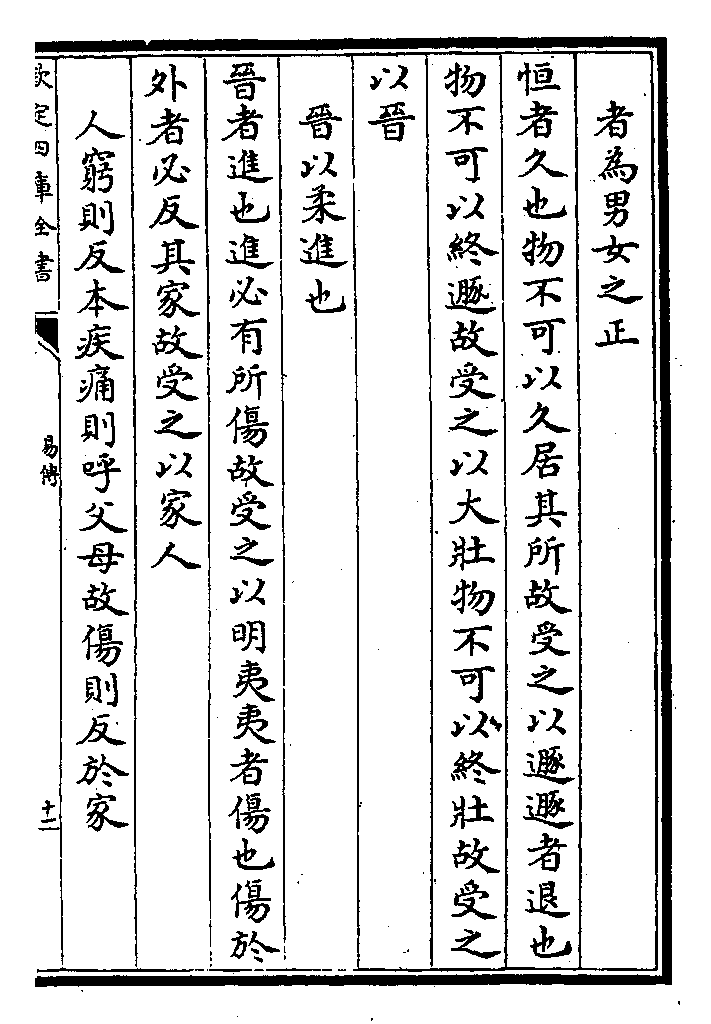 者為男女之正
恒者久也物不可以久居其所故受之以遯遯者退也
物不可以終遯故受之以大壯物不可以終壯故受之
以晉
晉以柔進也
晉者進也進必有所傷故受之以明夷夷者傷也傷於
外者必反其家故受之以家人
人窮則反本疾痛則呼父母故傷則反於家
欽定四庫全書
易傳
十二